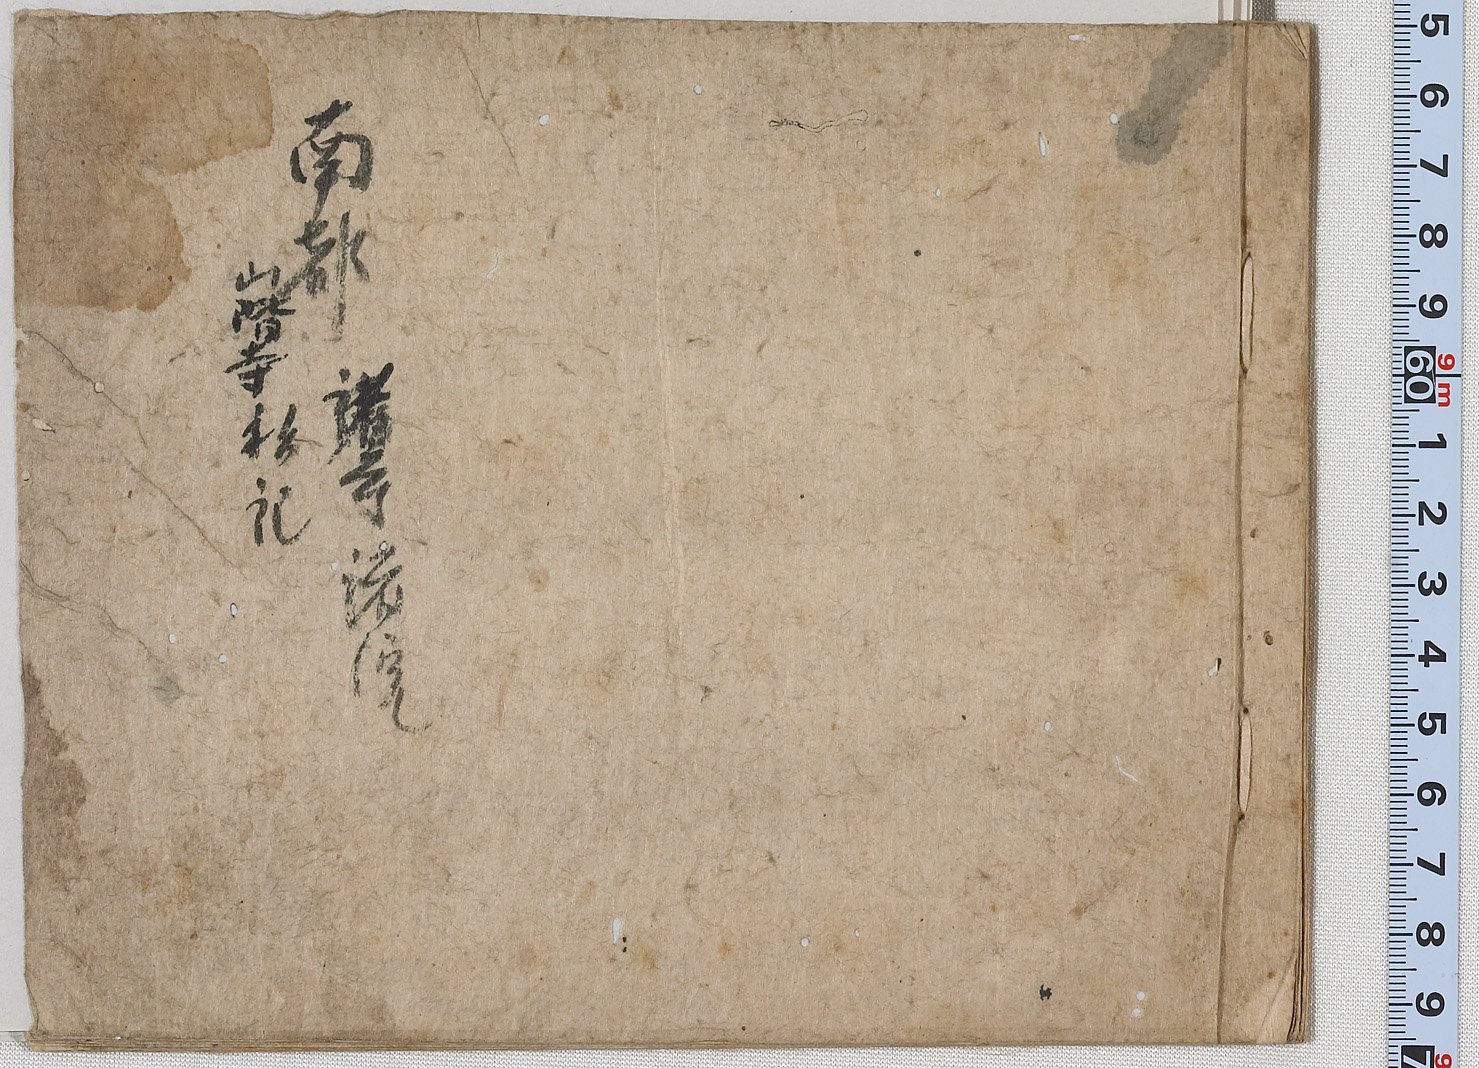 南都諸寺諸院
山階寺私記
5 6 7 8 9 60 1 2 3 4 5 6 7 8 9 7
9m
9